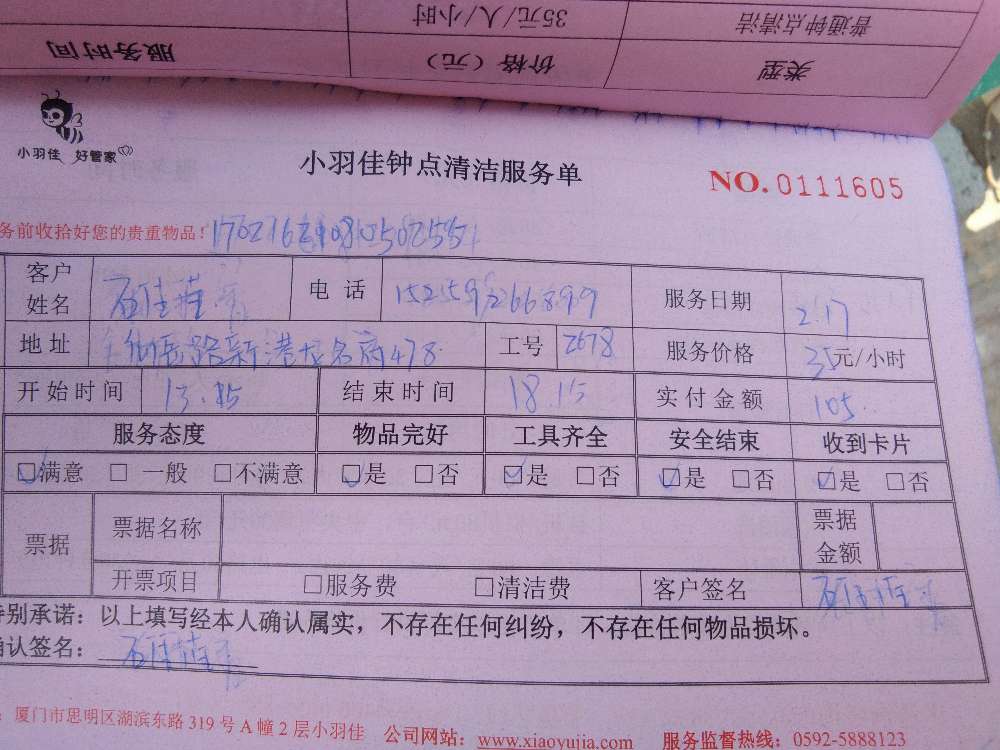 普通钟点清洁 35元/人/小时
类型 价格（元） 服务时间
小羽佳 好管家
小羽佳钟点清洁服务单
NO.0111605
务前收拾好您的贵重物品！
客户姓名 电话 服务日期 2.17
地址 工号 2678 服务价格 35元/小时
开始时间 13.15 结束时间 18.15 实付金额 105
服务态度 物品完好 工具齐全 安全结束 收到卡片
☑满意 □一般 □不满意 ☑是 □否 ☑是 □否 ☑是 □否 ☑是 □否
票据 票据名称 票据金额
开票项目 □服务费 □清洁费 客户签名
特别承诺：以上填写经本人确认属实，不存在任何纠纷，不存在任何物品损坏。
确认签名：
厦门市思明区湖滨东路319号A幢2层小羽佳 公司网站：www.xiaoyujia.com 服务监督热线：0592-5888123